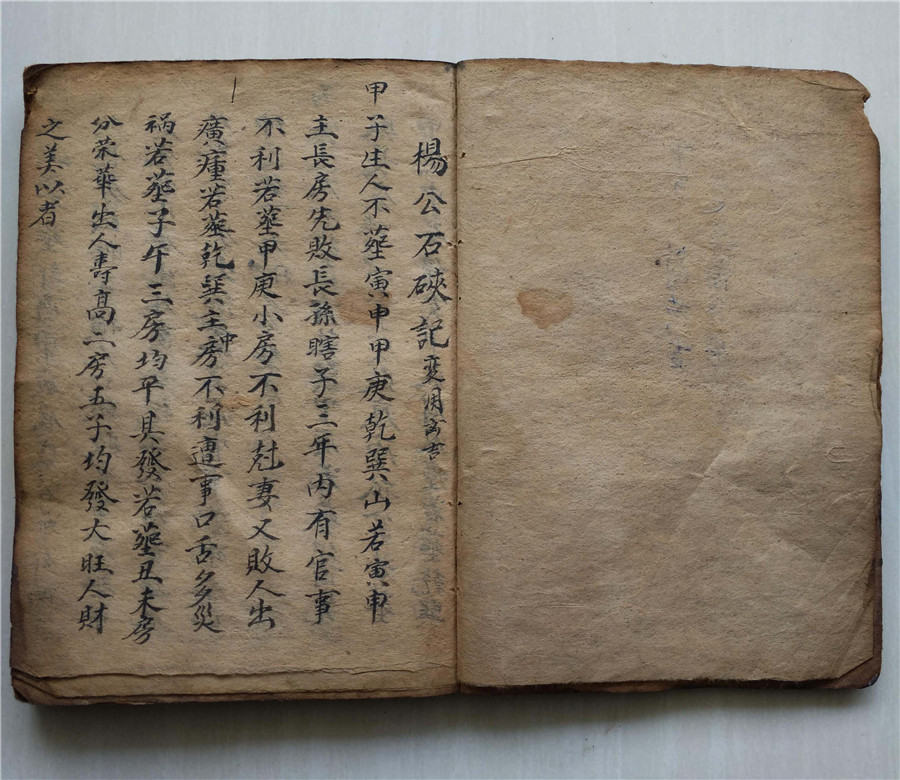 楊公石硤記变用吉
甲子生人不塟寅申甲庚乾巽山若寅申
主長房先敗長孫瞎子三年内有官事
不利若塟甲庚小房不利尅妻又敗人出
癀瘇若塟乾巽主中房不利遭事口舌多災
祸若塟子午三房均平具發若塟丑未房
分荣華出人壽高二房五子均發大旺人財
之美以者